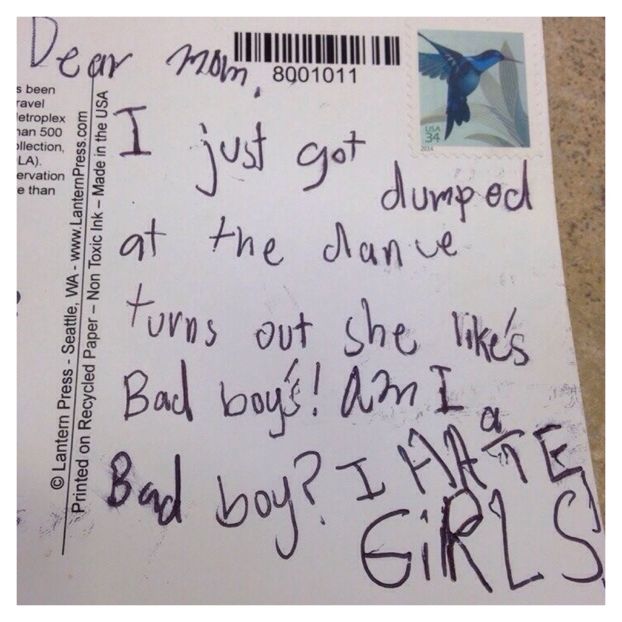 Dear mom,
8001011
USA
34
2014
s been
ravel
etroplex
an 500
ollection,
LA).
ervation
e than
© Lantern Press - Seattle, WA - www.LanternPress.com
Printed on Recycled Paper – Non Toxic Ink – Made in the USA
I just got
dumped
at the dance
turns out she like's
Bad boy's! am I a
Bad boy? I HATE
GiRLS